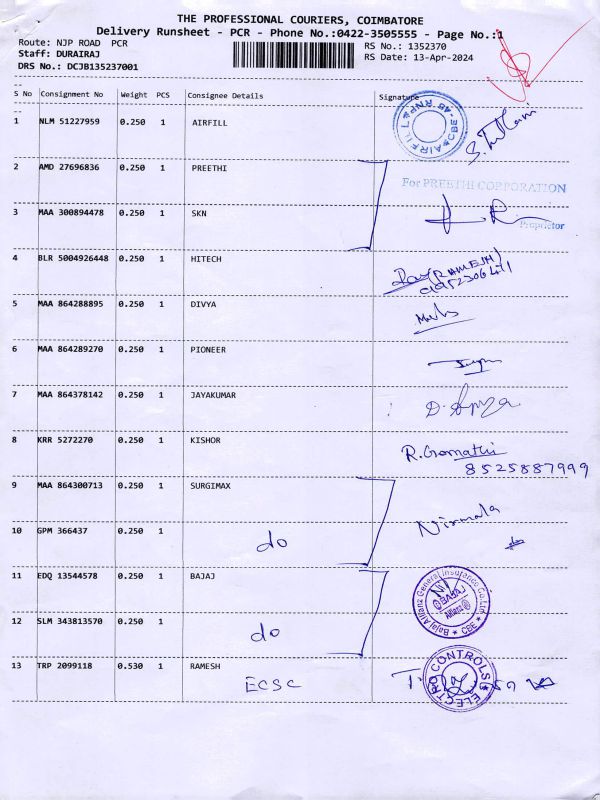 THE PROFESSIONAL COURIERS, COIMBATORE
Delivery Runsheet - PCR - Phone No.:0422-3505555 - Page No.:1
Route: NJP ROAD PCR
RS No.: 1352370
Staff: DURAIRAJ
RS Date: 13-Apr-2024
DRS No.: DCJB135237001
S No Consignment No Weight PCS Consignee Details Signature
1 NLM 51227959 0.250 1 AIRFILL
AIRFILL CBE-45
2 AMD 27696836 0.250 1 PREETHI
For PREETHI CORPORATION
3 MAA 300894478 0.250 1 SKN
Proprietor
4 BLR 5004926448 0.250 1 HITECH
(RAMESH)
5 MAA 864288895 0.250 1 DIVYA
6 MAA 864289270 0.250 1 PIONEER
7 MAA 864378142 0.250 1 JAYAKUMAR
8 KRR 5272270 0.250 1 KISHOR
R. Gomathi
8525887999
9 MAA 864300713 0.250 1 SURGIMAX
Nirmala
10 GPM 366437 0.250 1 do
11 EDQ 13544578 0.250 1 BAJAJ
Bajaj Allianz General Insurance Co. Ltd * CBE *
BAJAJ Allianz
12 SLM 343813570 0.250 1 do
13 TRP 2099118 0.530 1 RAMESH
ECSC
ELECTRO CONTROLS